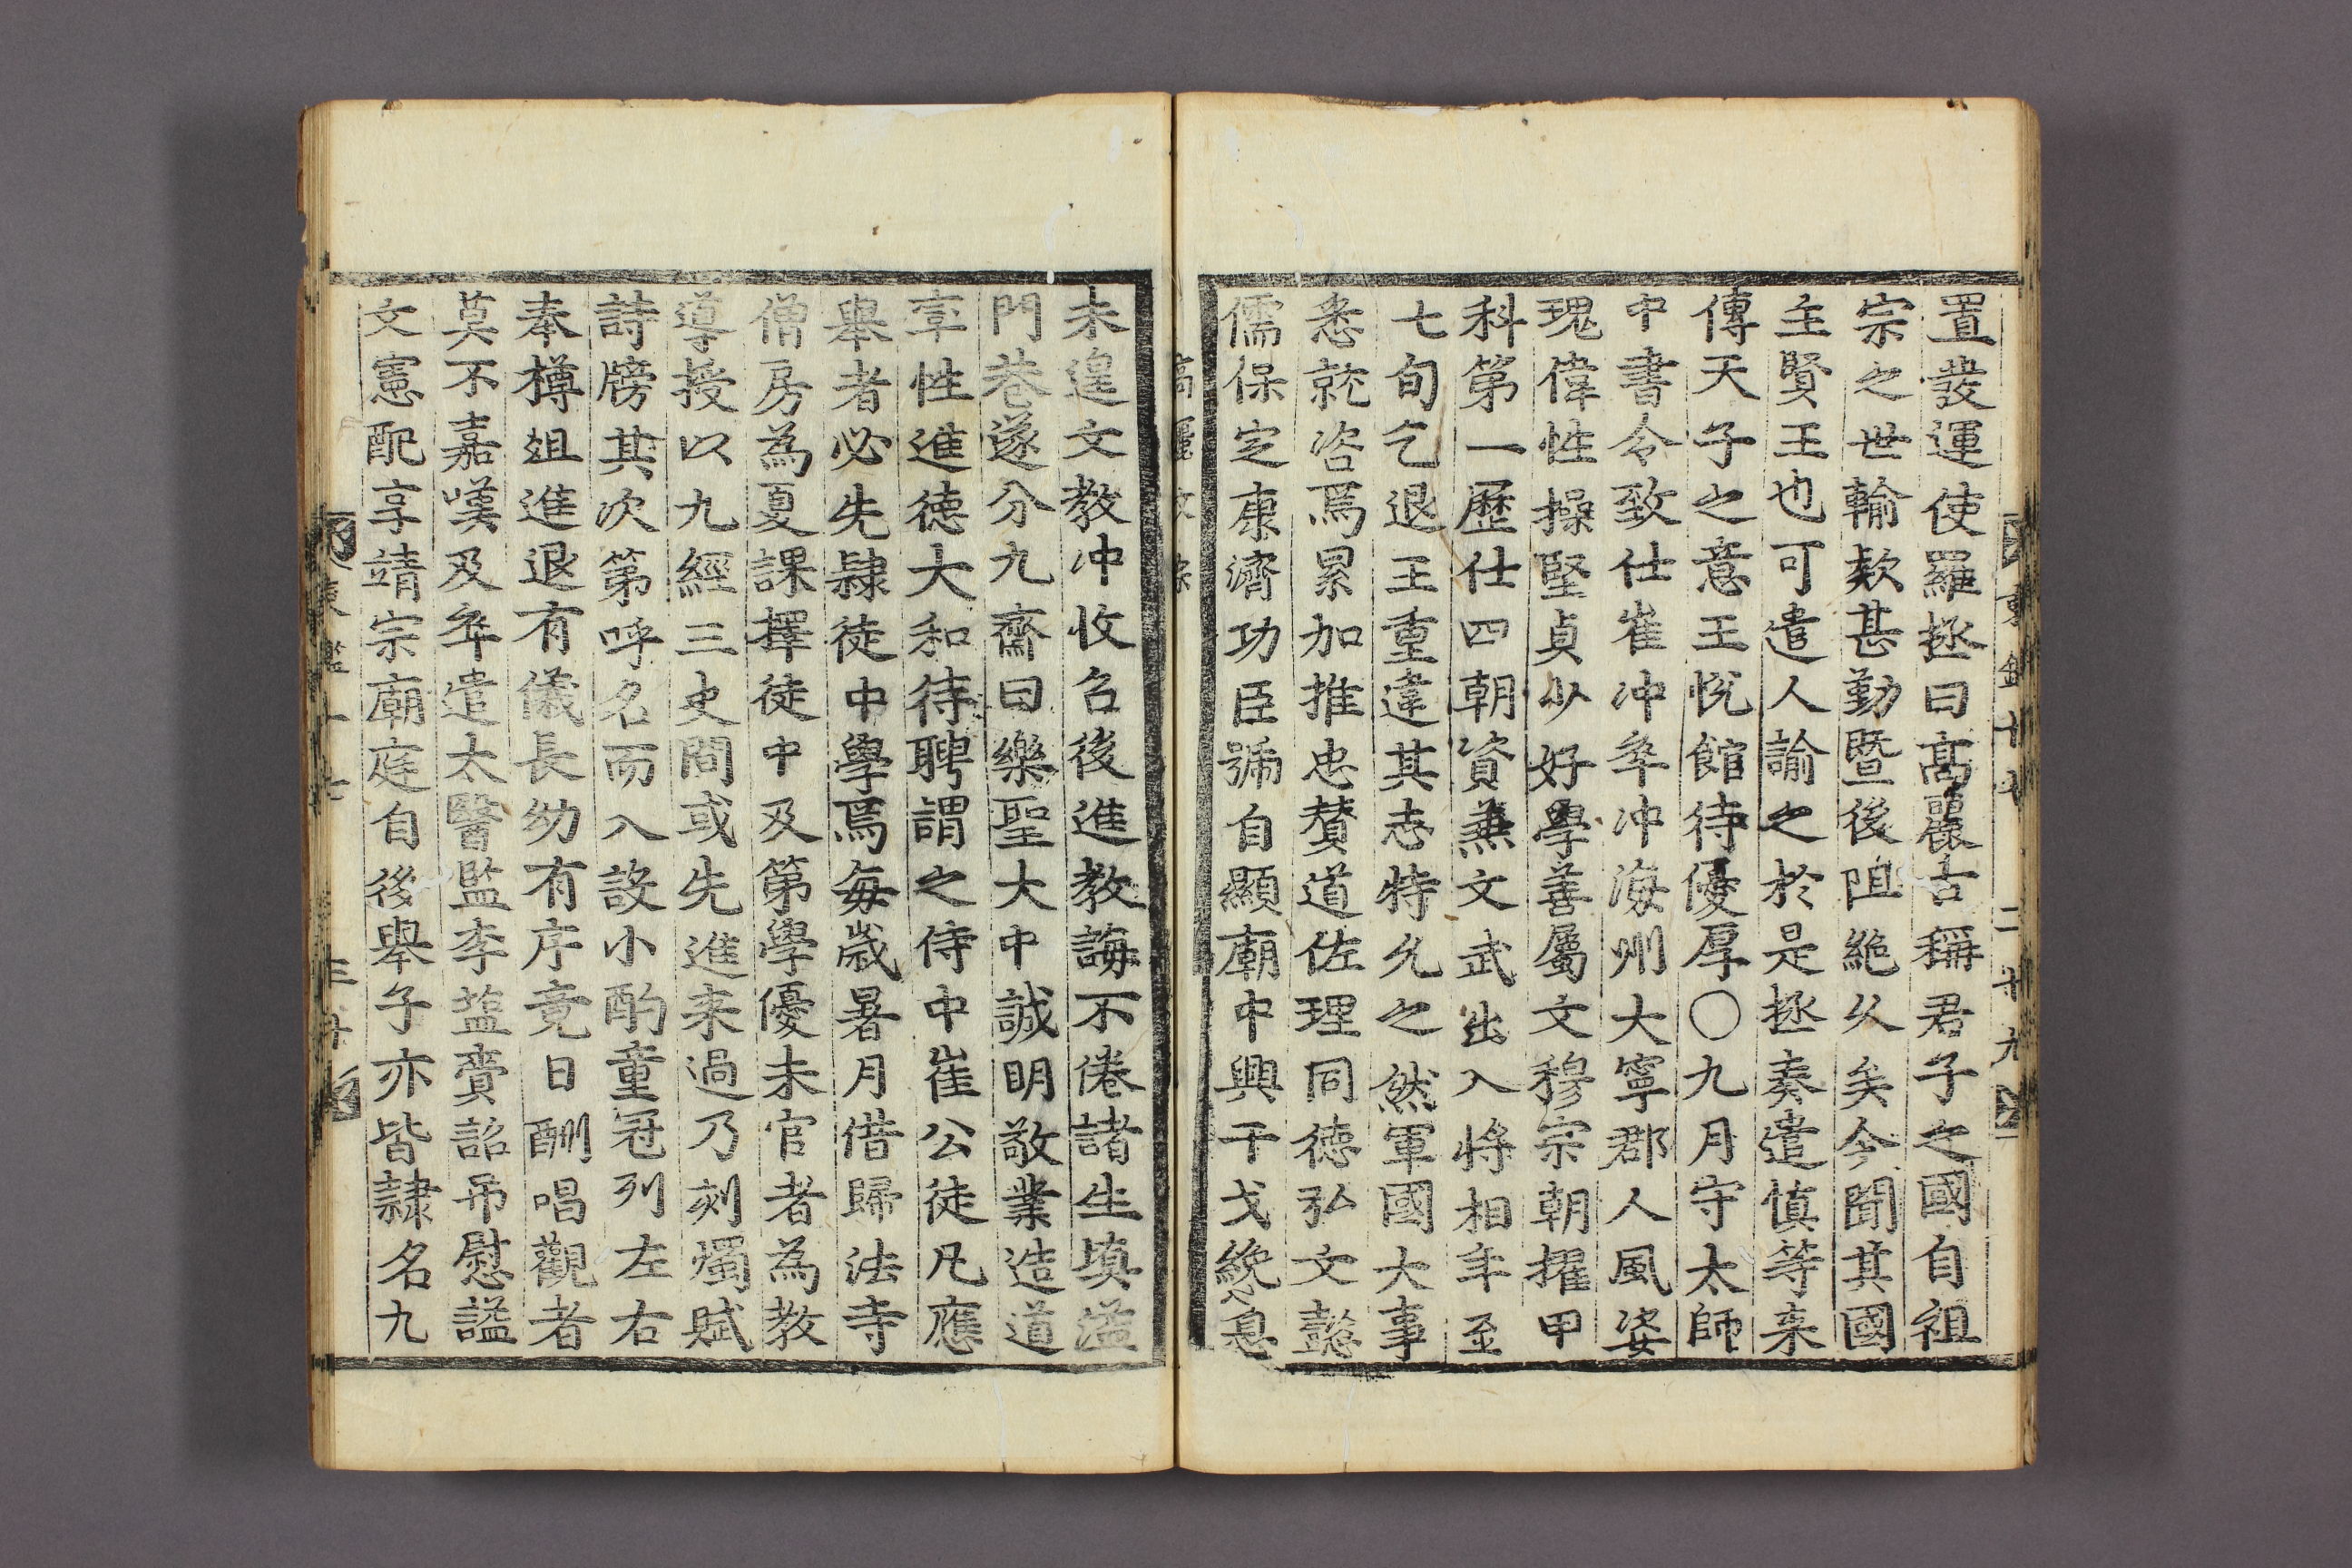 置發運使羅拯曰高麗古稱君子之國自祖
宗之世輸欵甚勤曁後阻絶久矣今聞其國
主賢王也可遣人諭之於是拯奏遣愼等来
傳天子之意王悅館待優厚○九月守太師
中書令致仕崔冲卒冲海州大寧郡人風姿
瑰偉性操堅貞少好學善屬文穆宗朝擢甲
科第一歷仕四朝資兼文武出入將相年至
七旬乞退王重違其志特允之然軍國大事
悉就咨焉累加推忠贊道佐理同德弘文懿
儒保定康濟功臣號自顯廟中興干戈纔息
未遑文教冲收召後進教誨不倦諸生塡溢
門巷遂分九齋曰樂聖大中誠明敬業造道
率性進德大和待聘謂之侍中崔公徒凡應
擧者必先隸徒中學焉每歲暑月借歸法寺
僧房為夏課擇徒中及第學優未官者為教
導授以九經三史間或先進来過乃刻燭賦
詩牓其次第呼名而入設小酌童冠列左右
奉樽俎進退有儀長幼有序竟日酬唱觀者
莫不嘉嘆及卒遣太醫監李盐賫詔吊慰謚
文憲配享靖宗廟庭自後擧子亦皆隷名九